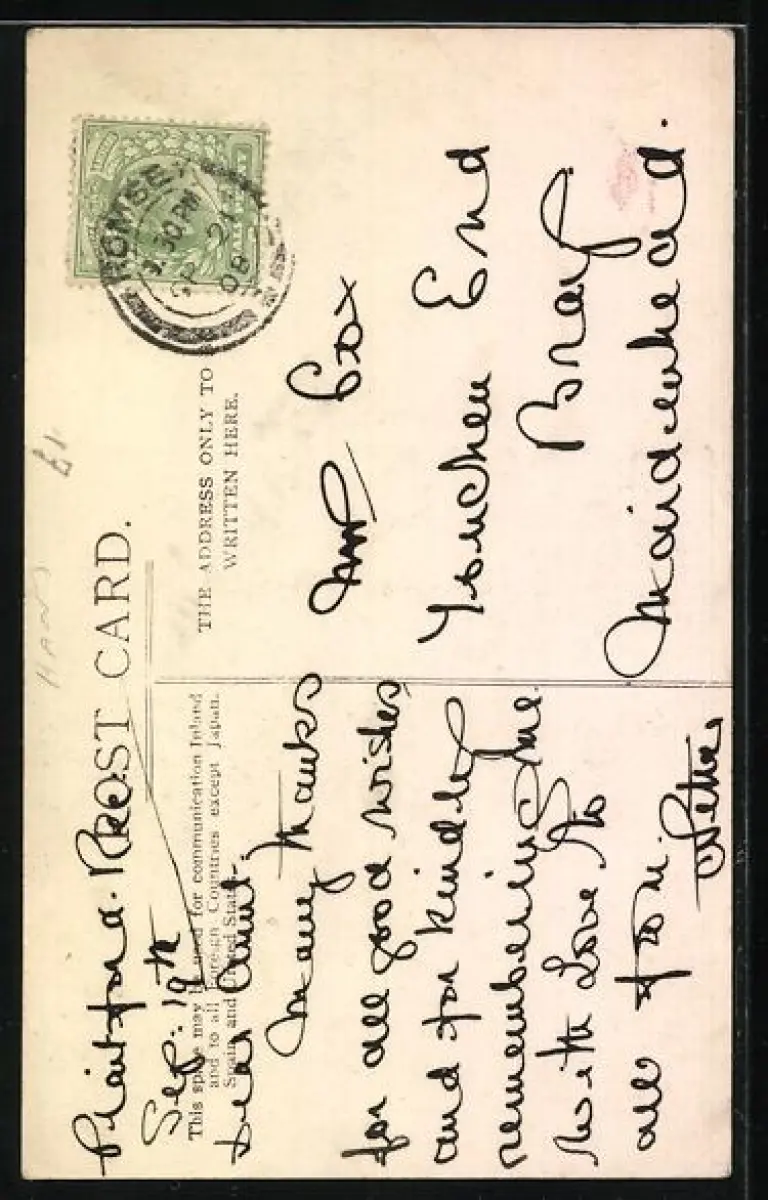 POST CARD.
This space may be used for communication Inland
and to all Foreign Countries except Japan,
Spain, and United States.
THE ADDRESS ONLY TO
WRITTEN HERE.
Plaitford. Rec:
Sep: 19th
Dear Aunt.
Many thanks
for all good wishes
and for kindly
remembering me.
With Love to
all of you.
Mrs Cox
End
Bray
Maidenhead.
ROMSEY
30 PM
SP 21
08
£1
HANTS